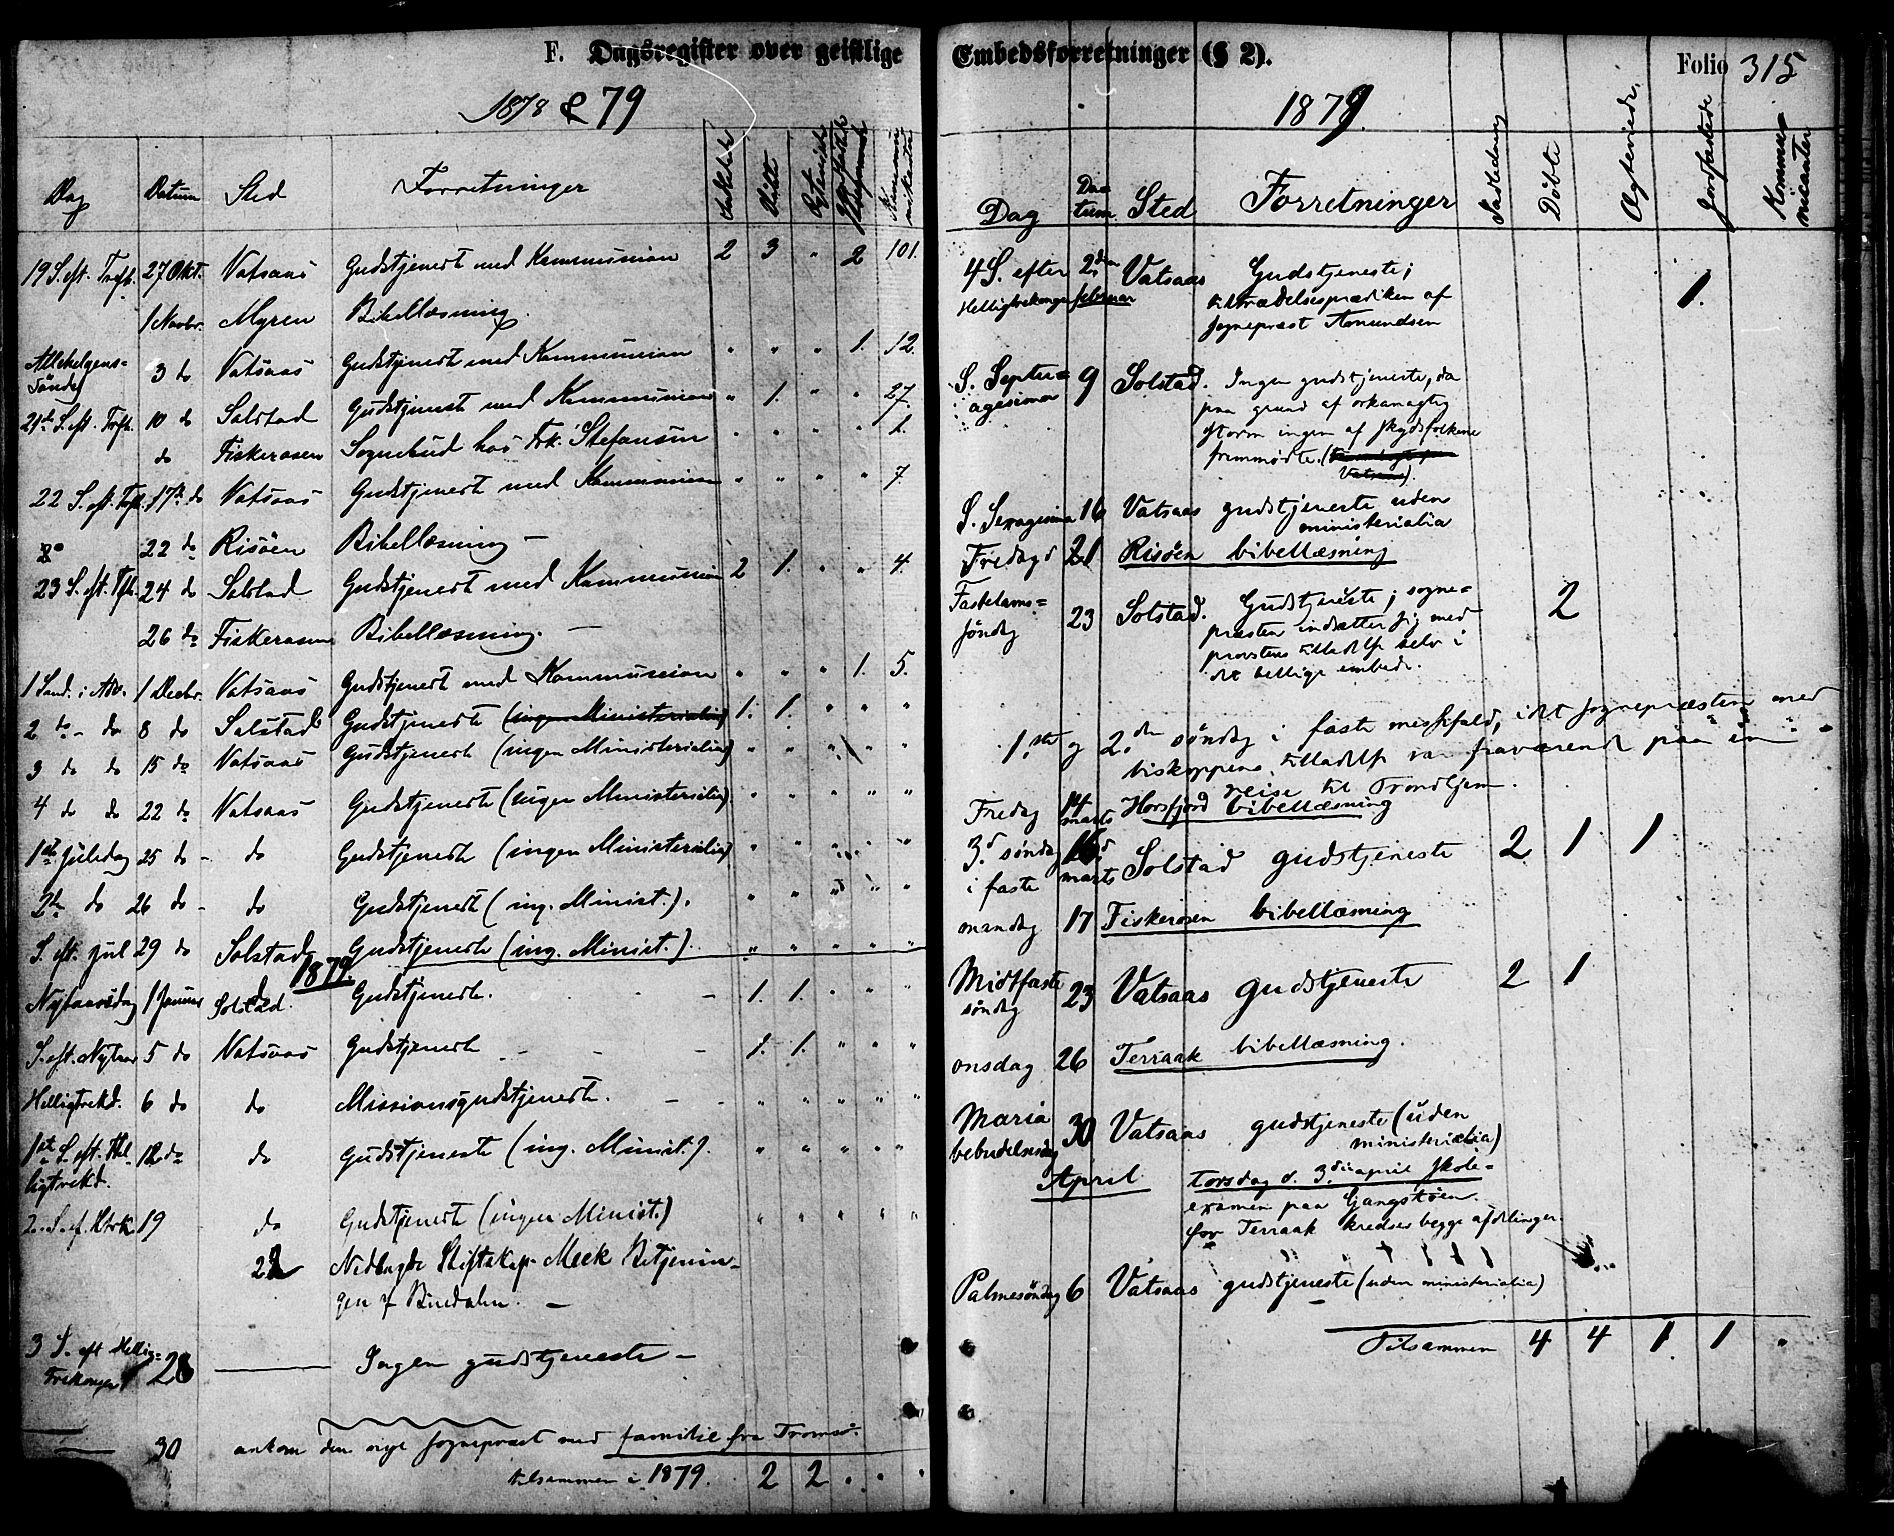 F. Dagsregister over geistlige
1878 & 79
Dag Datum Sted Forretninger Indledet Döbt
19 S. eft. Trefh. 27 Okt. Vatsaas Gudstjeneste med Kommunion 2 3 " 2 101.
1 Novbr. Myren Bibellæsning.
Allehelgens-
Söndag 3 do Vatsaas Gudstjeneste med Kommunion " " " 1. 12.
21de S. eft. Trefh. 10 do Solstad Gudstjeneste med Kommunion " 1. " " 27.
do Fiskerosen Sognebud hos Frk. Stefansen " " " " 1.
22 S. eft. Trefh. 17de do Vatsaas Gudstjeneste med Kommunion " " " " 7
22 do Risöen Bibellæsning –
23 S. eft. Tfh. 24 do Solstad Gudstjeneste med Kommunion 2 1. " " 4.
26 do Fiskerosen Bibellæsning. –
1 Sønd. i Adv. 1 Decbr. Vatsaas Gudstjeneste med Kommunion " " " 1. 5.
2 do - do 8 do Solstad Gudstjeneste (ingen Ministerialia) 1. 1. " " "
3 do do 15 do Vatsaas Gudstjeneste (ingen Ministerialia) " " " " "
4 do do 22 do Vatsaas Gudstjeneste (ingen Ministerialia) " " " " "
1ste Juledag 25 do - do Gudstjeneste (ingen Ministerialia) " " " " "
2den do 26 do - do Gudstjeneste (ing. Minist.). " " " " "
S. eft. jul 29 do Solstad Gudstjeneste (ing. Minist.). " " " " "
1879
Nytaarsdag 1 Januar Solstad Gudstjeneste. – 1. 1. " " "
S. eft. Nytaar 5 do Vatsaas Gudstjeneste – – – 1. 1. " " "
Helligtrekd. 6 do do Missionsgudstjeneste. – – " " " " "
1ste S. eft. Hel
ligtrekd. 12 do do Gudstjeneste (ing. Minist.). " " " " "
2. S. ef. Htrk. 19 do Gudstjeneste (ingen Minist.) " " " " "
22 Nedlagde Stiftskap. Meek Betjenin-
gen af Bindalen. –
3 S. eft Hellig-
trekonger 26 Ingen gudstjeneste –
30 ankom den nye sognepræst med familie fra Tromsö.
tilsammen i 1879. 2 2 " " "
Embedsforretninger (§ 2).
Folio 315
1879.
Dag Datum Sted Forretninger Indledning Döbte Ægteviede Jordfæstede Kommunicanter
4 S. efter 2den Vatsaas Gudstjeneste;
Helligtrekonger februar tiltrædelsesprædiken af
sognepræst Asmundsen 1.
S. Septu-
agesima 9 Solstad. Ingen gudstjeneste, da
paa grund af orkanagtig
storm ingen af skydsfolkene
fremmødte.
Vatsaas).
S. Sexagesima 16 Vatsaas gudstjeneste uden
ministerialia
Fredag d 21 Risöen bibellæsning
Fastelavns-
söndag 23 Solstad. Gudstjeneste; sogne- 2
præsten indsætter sig med
provstens tilladelse selv i
det hellige embede.
1.ste og 2.den søndag i faste messefald, idet sognepræsten med
biskoppens tilladelse var fraværende paa en
reise til Trondhjem.
Fredag 14 marts Horsfjord bibellæsning
3.d søndag 16.d Solstad gudstjeneste 2 1 1
i faste marts
mandag 17 Fiskerosen bibellæsning
Midtfaste
søndag 23 Vatsaas gudstjeneste 2 1
onsdag 26 Terraak bibellæsning.
Maria
bebudelsesdag 30 Vatsaas gudstjeneste (uden
ministerialia)
April torsdag d. 3.die april skole-
examen paa Gjangstöen
for Terraak kredses begge afdelinger.
Palmesöndag 6 Vatsaas gudstjeneste (uden ministerialia)
–
Tilsammen 4 4 1 1 "